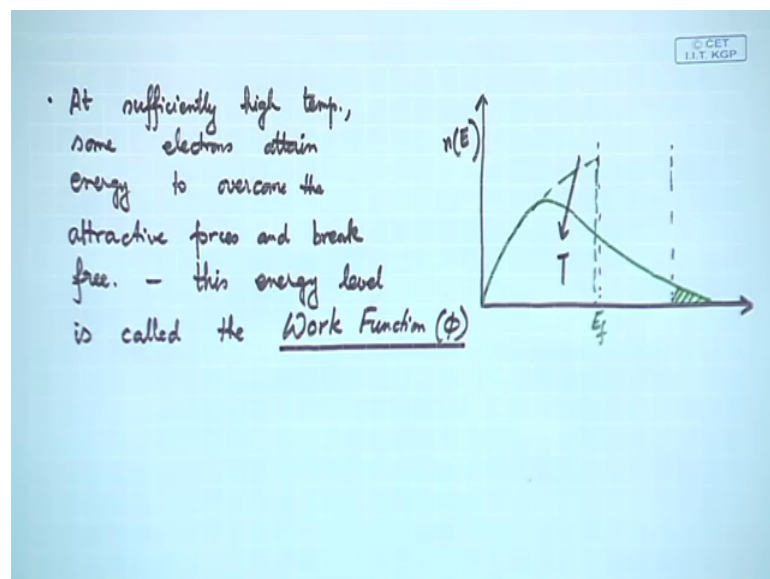 © CET
I.I.T. KGP
• At sufficiently high temp.,
some electrons attain
energy to overcome the
attractive forces and break
free. – this energy level
is called the Work Function (ϕ)
n(E)
T
E_f